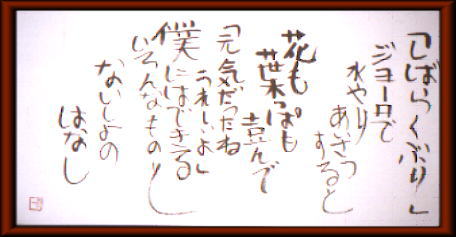 「しばらくぶり」
ジョーロで
水やり
あいさつ
すると
花も
葉っぱも
喜んで
「元気だったね
うれしいよ」
僕にはできる
いろんなものと
ないしょの
はなし